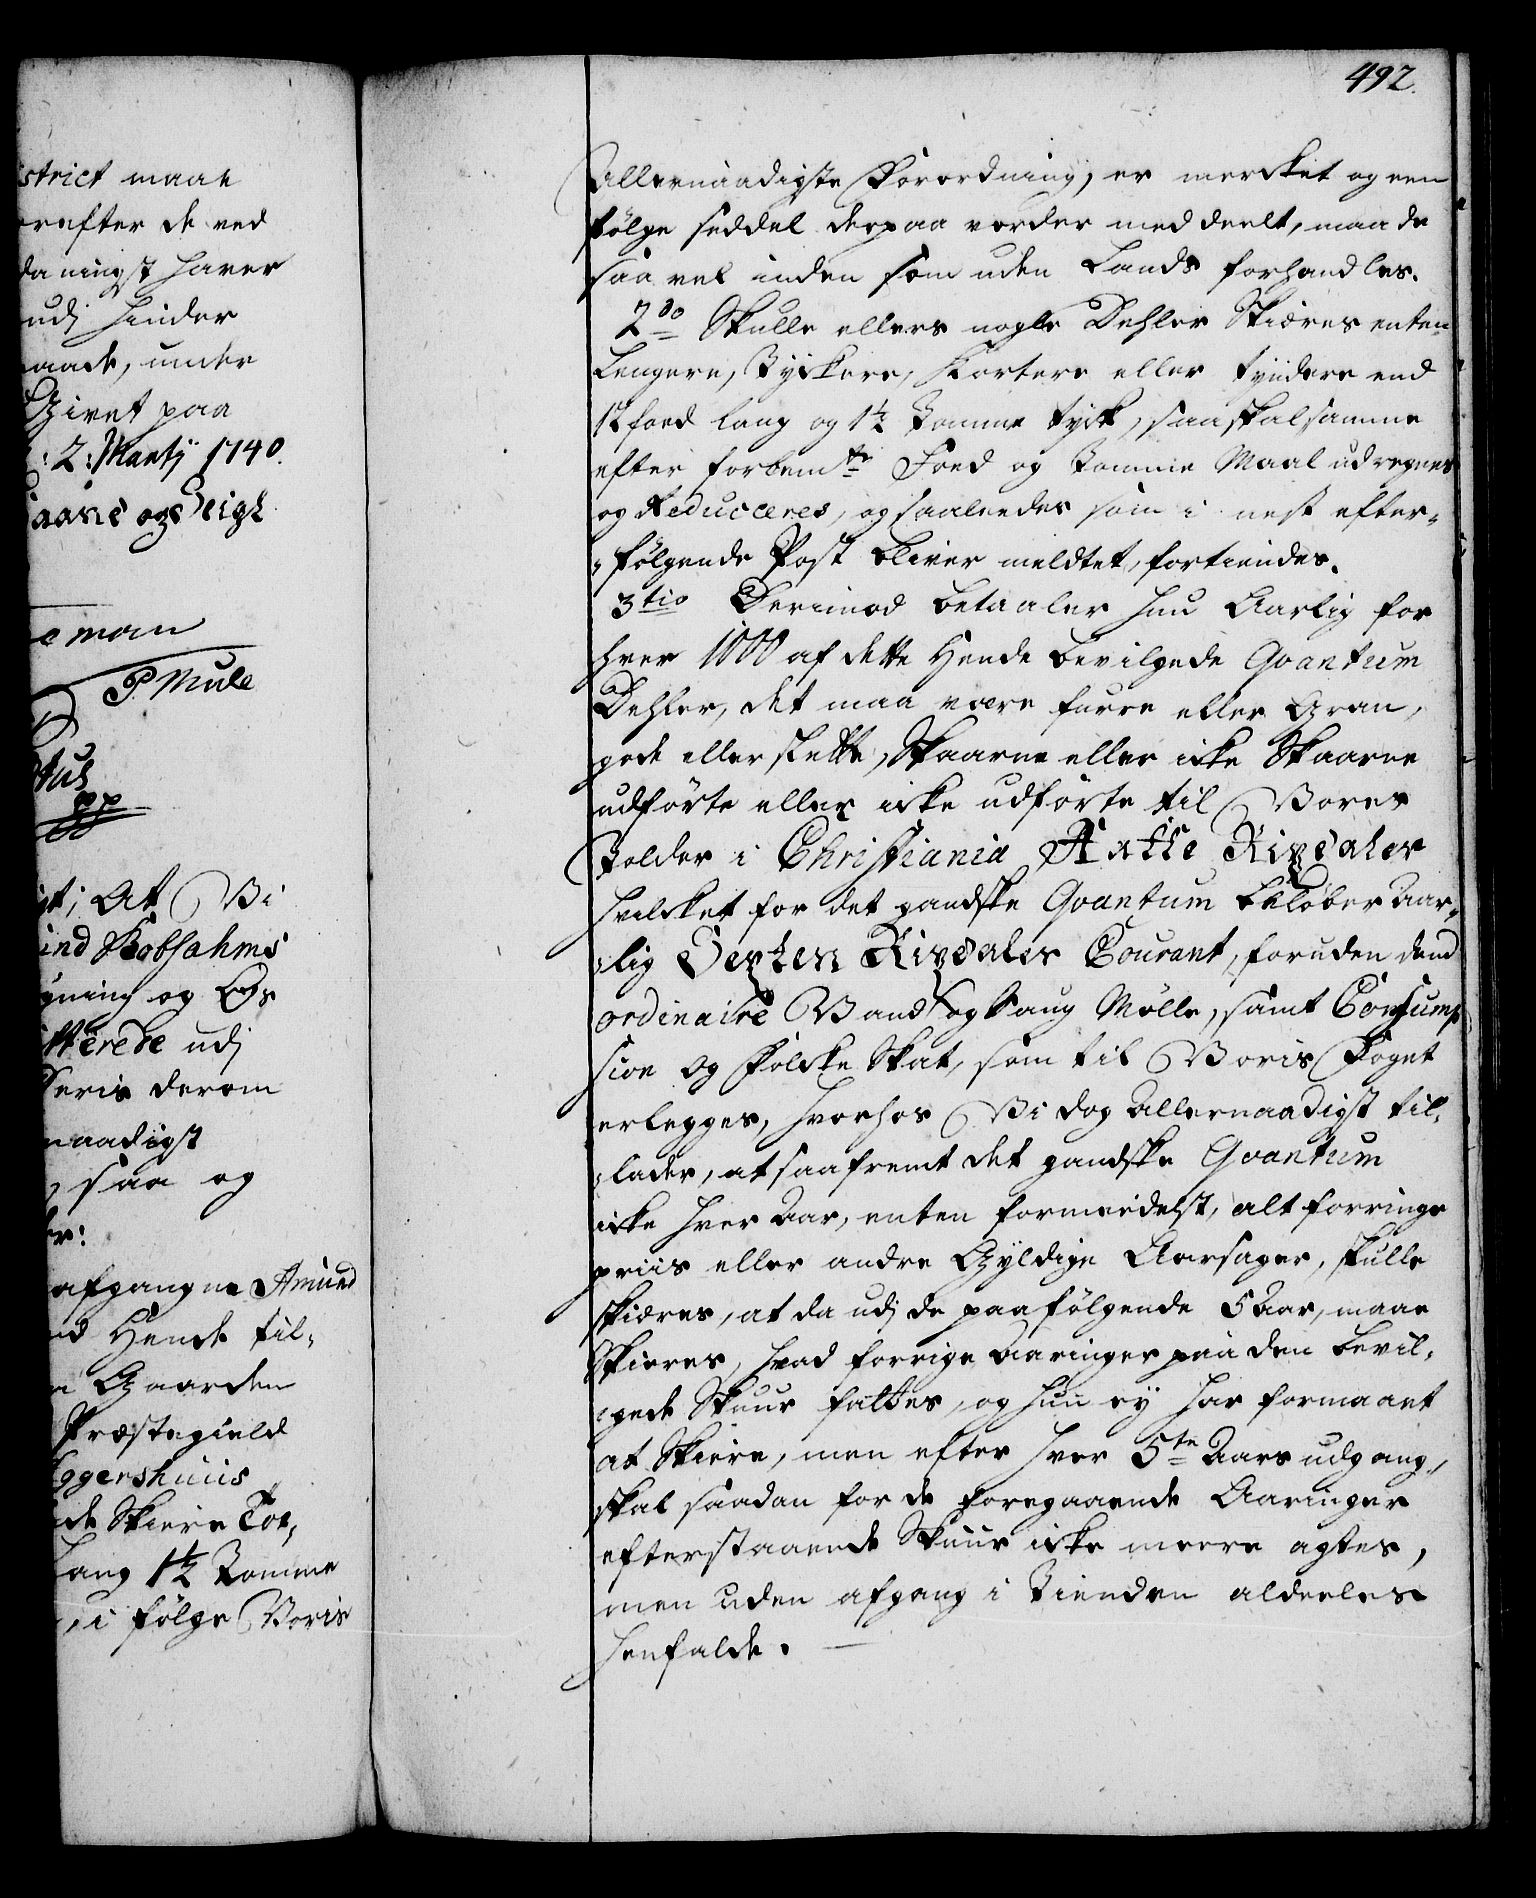 strict maae
erefter de ved
da ningst haver
udj hinder
maade, under
Givet paa
: 2: Martij 1740.
eman
P. Mule
At Vi
ind Kobsahms
ygning og
ttérede udj
Seris derom
naadigst
, saa og
er:
afgangne Amund
nd Hende til„
n Gaarden
Præstegield
Aggershuus
de Skiere Tot„
Lang 1½ Tomme
, i følge Voris
492.
Allernaadigste Forordning, er mercket og een
følge seddel derpaa vorder meddeelt, maa de
saa vel inden som uden Lands forhandles.
2do Skulle ellers nogle Dehler Skiæres enten
Lengere, Tyckere, Kortere eller tyndere end
12 foed lang og 1½ Tomme tyck, saa skal samme
efter forbemte Foed og Tomme Maal udregnes
og Reduceres, og saaleedes som i nest efter„
„følgende Post bliver meldtet, fortiendes.
3tio Derimod betaaler hun Aarlig for
hver 1000 af dette Hende bevilgede Qvantum
Dehler, det maa være furre eller Gran,
gode eller slette, Skaarne eller icke Skaarne
udførte eller icke udførte til Vores
Tolder i Christiania Aatte Rixdaler
hvilcket for det gandske Qvantum beløber Aar„
„lig Sexten Rixdaler Courant, foruden dend
ordinaire Vand og Saug Mølle, samt Consump
sion og Folcke Skat, som til Voris Foget
erlegges, hvorhos Vi dog Allernaadigst til„
„lader, at saafremt det gandske Qvantum
icke hver Aar, enten formedelst, alt forringe
priis eller andre Gyldige Aarsager, skulle
skiæres, at da udj de paafølgende 5 Aar, maae
Skieres, hvad forrige Aaringer paa den bevil„
„gede Skuur fattes, og hun ey har formaaet
at Skiere, men efter hver 5te Aars udgang„
skal saadan for de foregaaende Aaringer
efterstaaende Skuur icke meere agtes,
men uden afgang i Tienden aldeeles
henfalde.